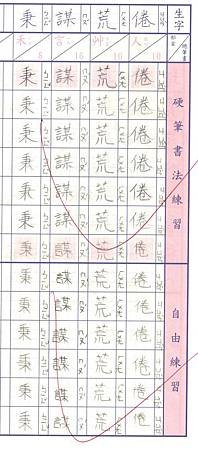 生字 部首 總筆畫 硬筆書法練習 自由練習
倦 人 10 倦倦倦倦倦倦倦倦倦倦倦倦倦
ㄐㄩㄢˋ
荒 艸 10 荒荒荒荒荒荒荒荒荒荒荒荒荒
ㄏㄨㄤ
謀 言 16 謀謀謀謀謀謀謀謀謀謀謀謀謀
ㄇㄡˊ
秉 禾 8 秉秉秉秉秉秉秉秉秉秉秉秉秉
ㄅㄧㄥˇ